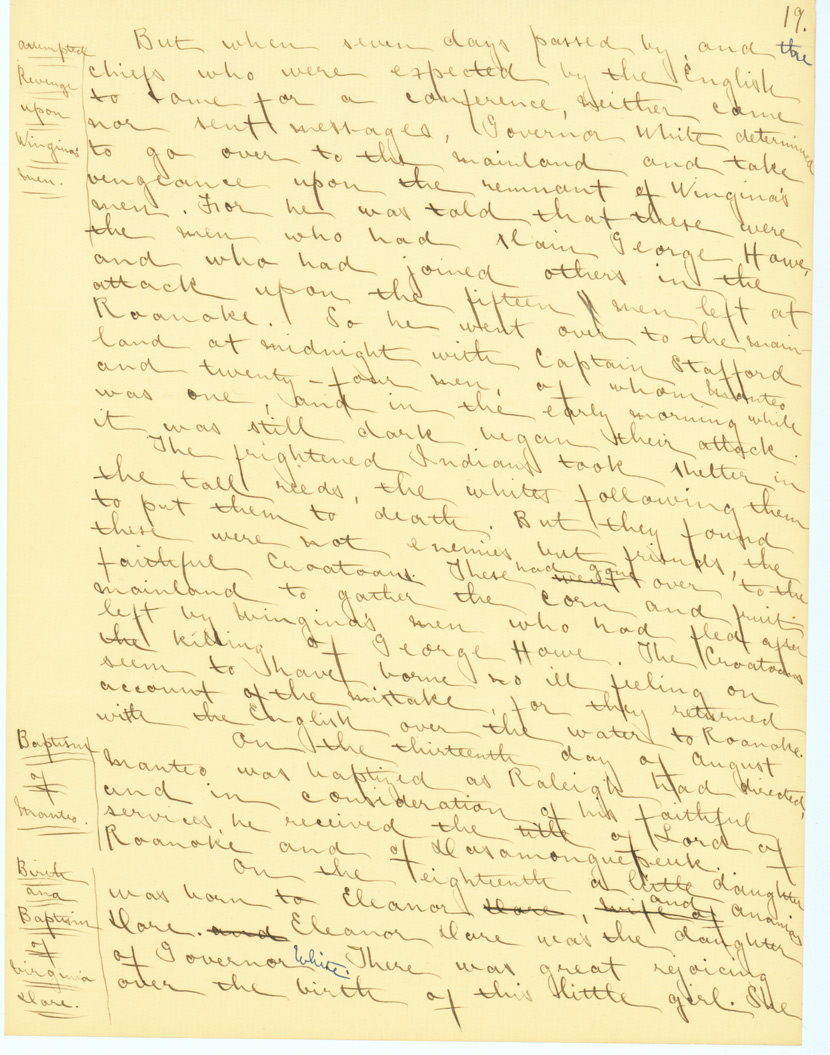 19.
attempted
Revenge
upon
Wingina's
men.
But when seven days passed by, and the
chiefs who were expected by the English
to come for a conference, neither came
nor sent messages, Governor White determined
to go over to the mainland and take
vengeance upon the remnant of Wingina's
men. For he was told that these were
the men who had slain George Howe,
and who had joined others in the
attack upon the fifteen men left at
Roanoke. So he went over to the main-
land at midnight with Captain Stafford
and twenty-four men, of whom Manteo
was one, and in the early morning while
it was still dark began their attack.
The frightened Indians took shelter in
the tall reeds, the whites following them
to put them to death. But they found
these were not enemies but friends, the
faithful Croatoans. These had gone over to the
mainland to gather the corn and fruit
left by Wingina's men who had fled after
the killing of George Howe. The Croatoans
seem to have borne no ill feeling on
account of the mistake, for they returned
with the English over the water to Roanoke.
Baptism
of
Manteo.
On the thirteenth day of August
Manteo was baptized as Raleigh had directed,
and in consideration of his faithful
services, he received the title of Lord of
Roanoke and of Dasamonguepeuk.
Birth
and
Baptism
of
Virginia
Dare.
On the eighteenth a little daughter
was born to Eleanor Dare, wife of and Ananias
Dare. and Eleanor Dare was the daughter
of Governor White. There was great rejoicing
over the birth of this little girl. She